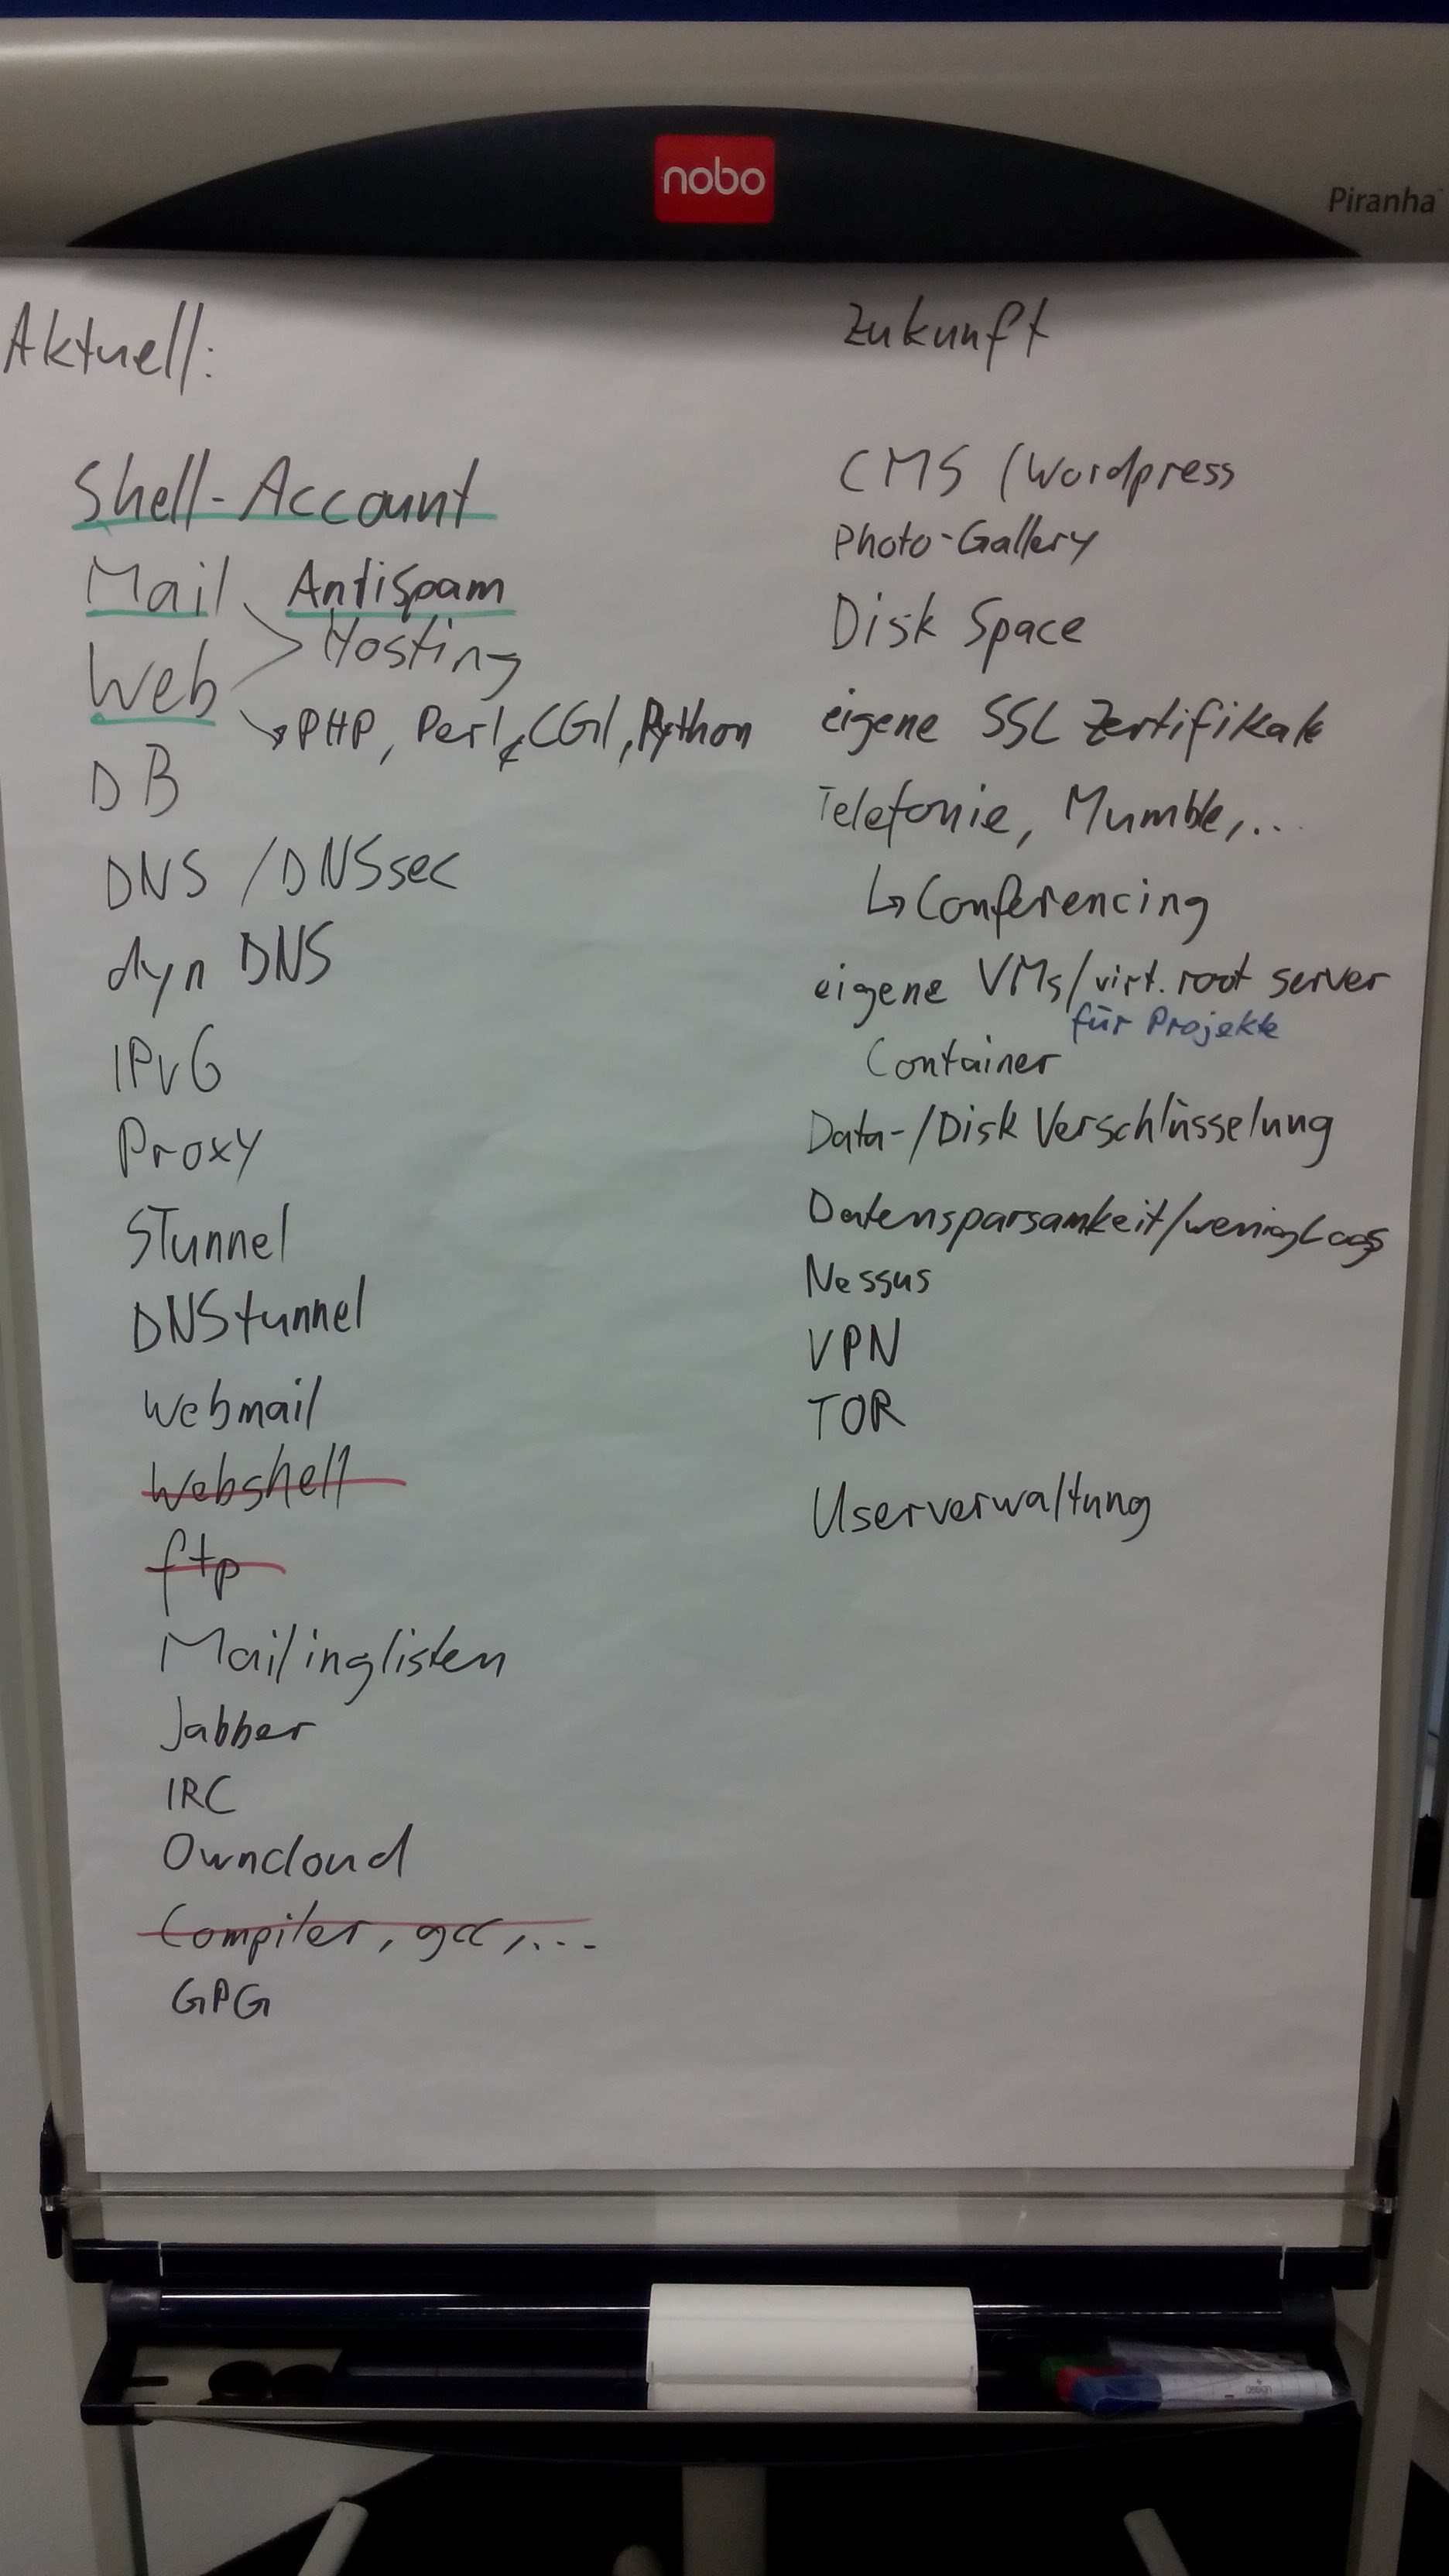 nobo
Piranha
Aktuell:
Shell-Account
Mail Antispam
Hosting
Web
PHP, Perl, CGI, Python
DB
DNS /DNSsec
dyn DNS
IPv6
Proxy
STunnel
DNStunnel
Webmail
Webshell
ftp
Mailinglisten
Jabber
IRC
Owncloud
Compiler, gcc, ...
GPG
Zukunft
CMS (Wordpress
Photo-Gallery
Disk Space
eigene SSL Zertifikate
Telefonie, Mumble, ...
↳ Conferencing
eigene VMs/virt. root server
für Projekte
Container
Data-/Disk Verschlüsselung
Datensparsamkeit/wenig Logs
Nessus
VPN
TOR
Userverwaltung